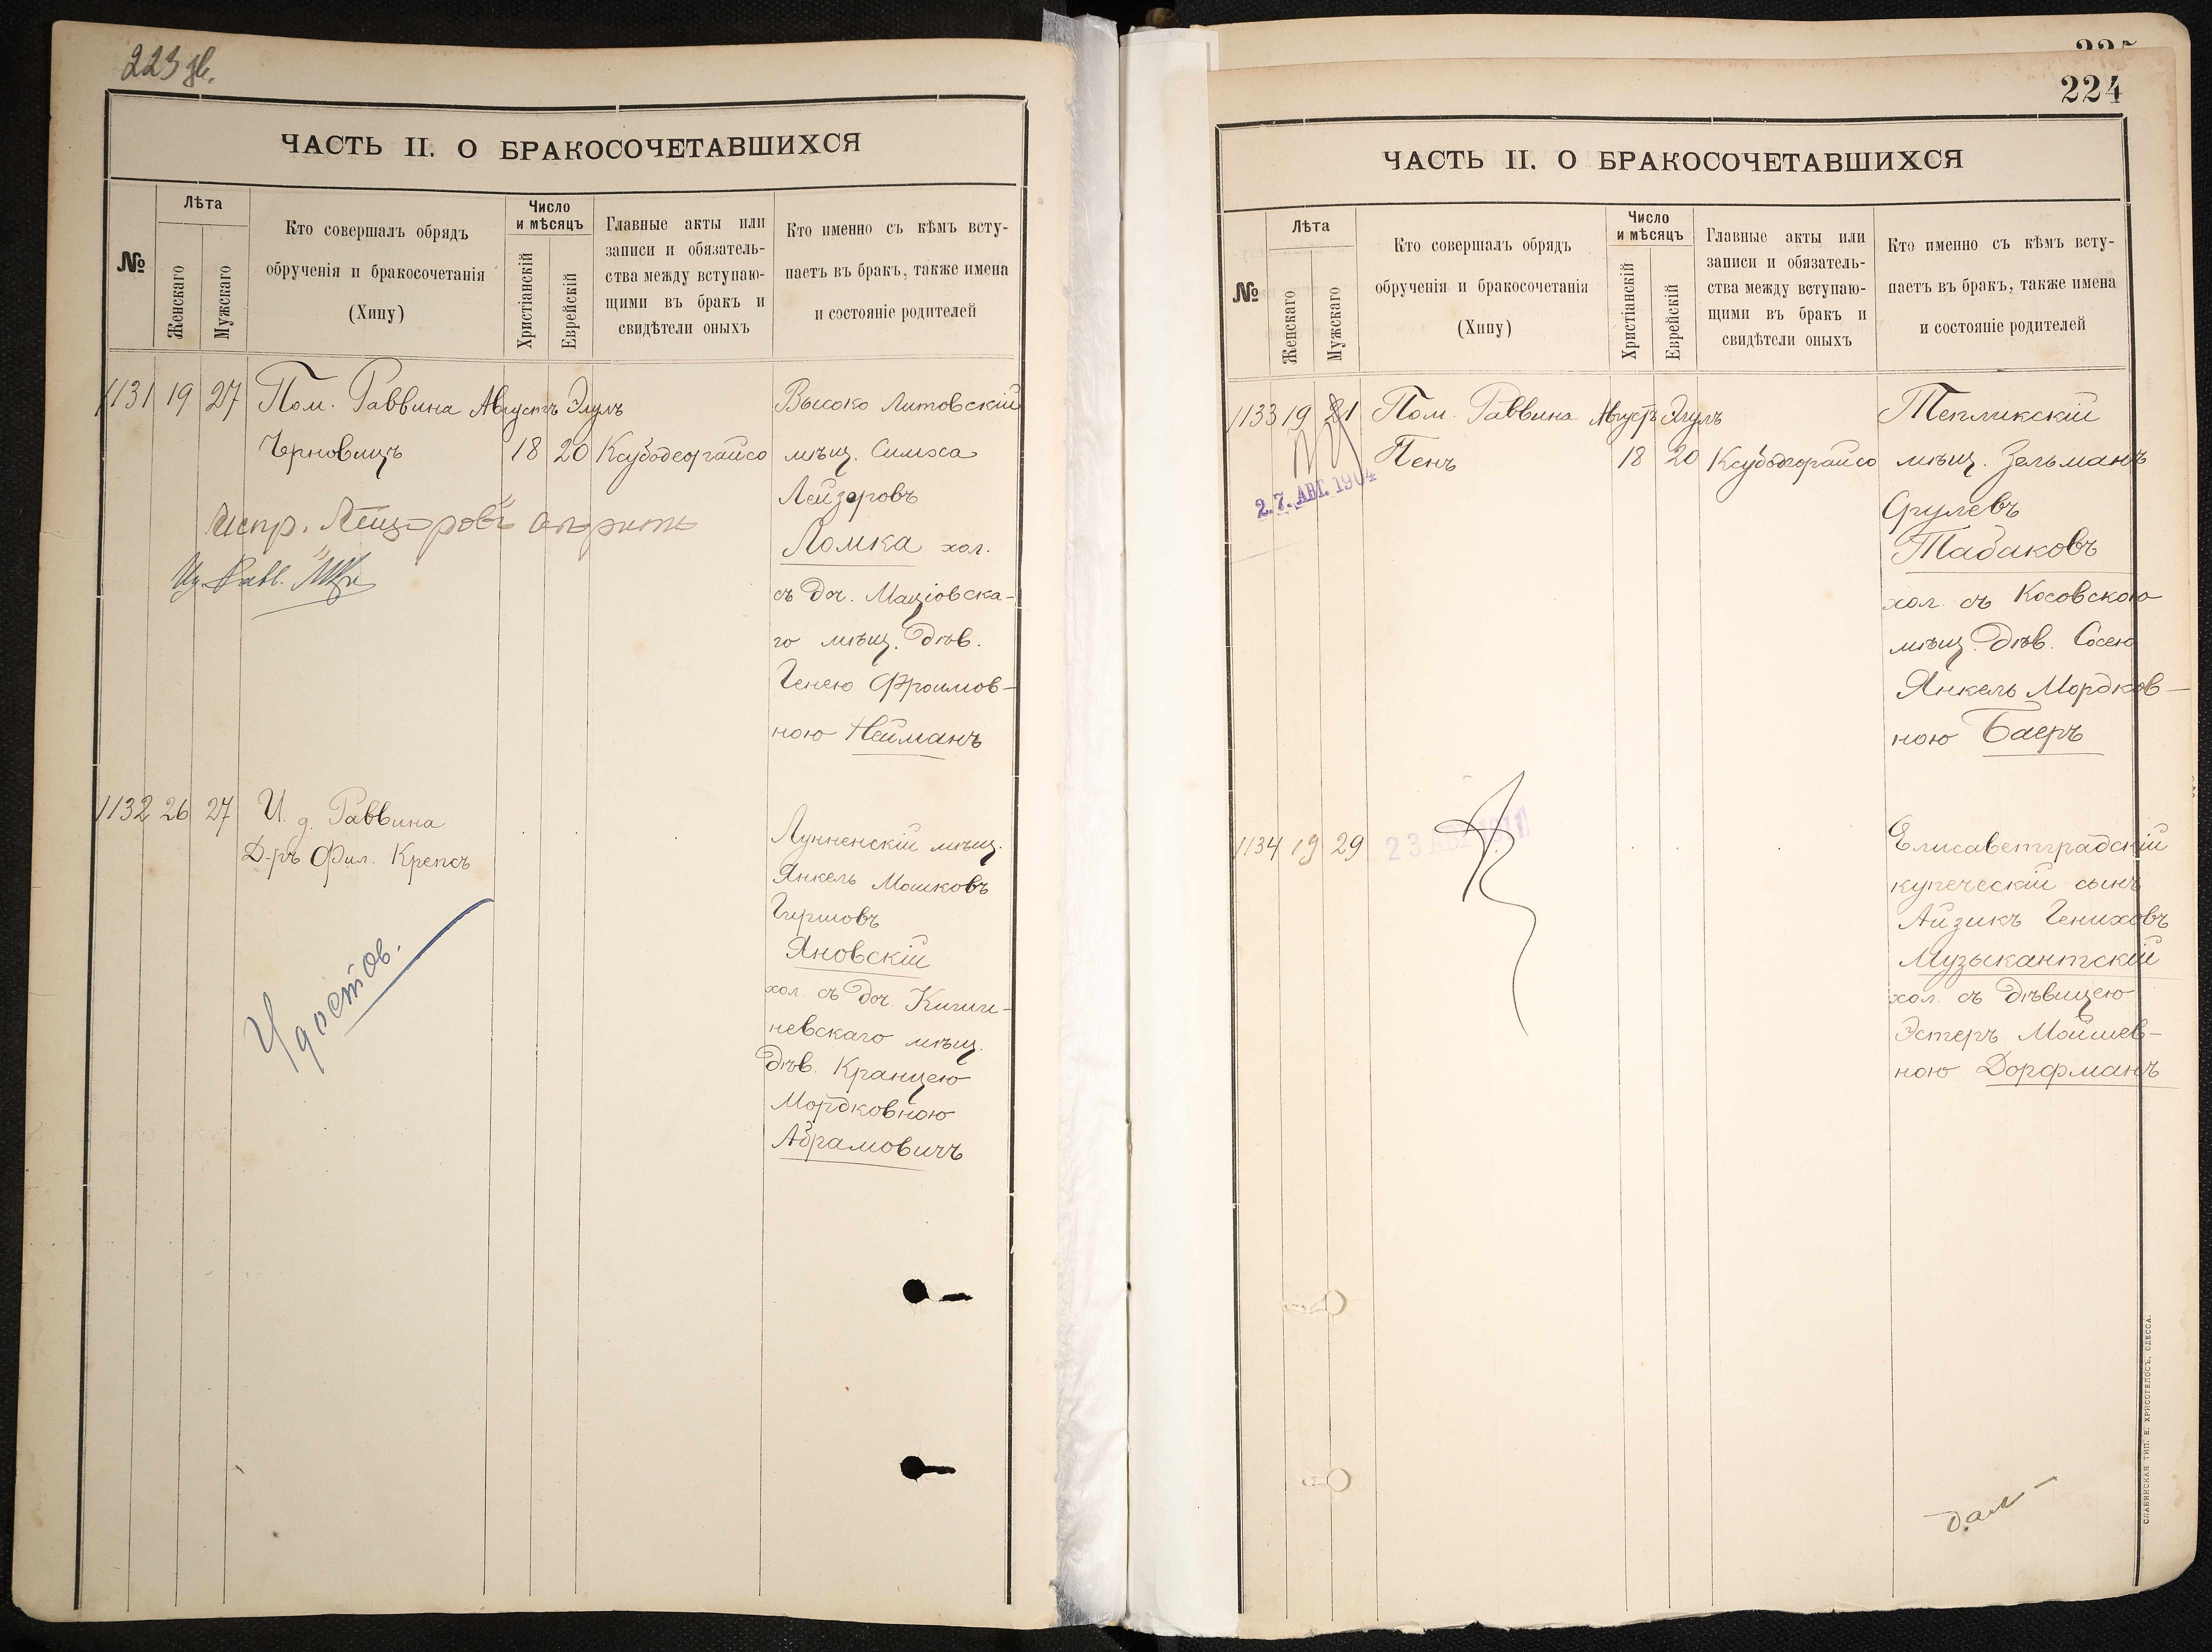 223
ЧАСТЬ II. О БРАКОСОЧЕТАВШИХСЯ
№
Лѣта
Женскаго
Мужскаго
Кто совершалъ обрядъ
обрученія и бракосочетанія
(Хипу)
Число
и мѣсяцъ
Христіанскій
Еврейскій
Главные акты или
записи и обязатель-
ства между вступаю-
щими въ бракъ и
свидѣтели оныхъ
Кто именно съ кѣмъ всту-
паетъ въ бракъ, также имена
и состояніе родителей
1131 19 27 Пом. Раввина Августъ Элулъ
Черновицъ 18 20
Высоко Литовскій
мѣщ. Симха
Лейзеровъ
Ломка хол.
съ доч. Маціовска-
го мѣщ. дѣв.
Генею Фроимов-
ною Нейманъ
испр. Лейзеровъ
1132 26 27 И. д. Раввина
Д-ръ Фил. Крепсъ
Удостов.
Лунненскій мѣщ.
Янкель Мошковъ
Гиршовъ
Яновскій
хол. съ доч. Кишине-
невскаго мѣщ.
дѣв. Кранцею
Мордковною
Абрамовичъ
224
ЧАСТЬ II. О БРАКОСОЧЕТАВШИХСЯ
№
Лѣта
Женскаго
Мужскаго
Кто совершалъ обрядъ
обрученія и бракосочетанія
(Хипу)
Число
и мѣсяцъ
Христіанскій
Еврейскій
Главные акты или
записи и обязатель-
ства между вступаю-
щими въ бракъ и
свидѣтели оныхъ
Кто именно съ кѣмъ всту-
паетъ въ бракъ, также имена
и состояніе родителей
1133 19 21 Пом. Раввина Августъ Элулъ
Пенъ 18 20
27. АВГ. 1904
Тепликскій
мѣщ. Зельманъ
Срулевъ
Табаковъ
хол. съ Косовскою
мѣщ. дѣв. Сосею
Янкель Мордков-
ною Баеръ
1134 19 29
23 АВГ
Елисаветградскій
купеческій сынъ
Айзикъ Гениховъ
Музыкантскій
хол. съ дѣвицею
Эстеръ Мойшев-
ною Дорфманъ
СЛАВЯНСКАЯ ТИП. Е. ХРИСОГЕЛОСЪ, ОДЕССА.